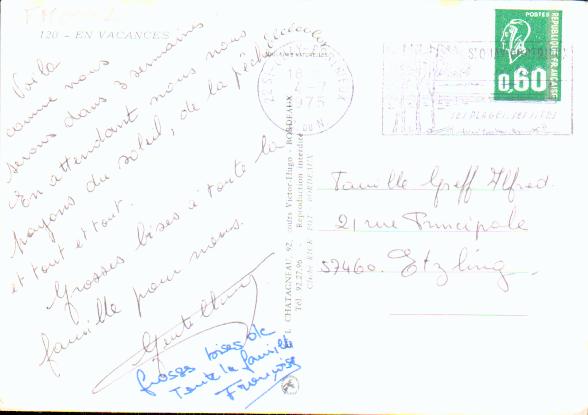 120 - EN VACANCES
Voilà
comme nous
serons dans 3 semaines
En attendant nous nous
payons du soleil, de la pêche
et tout et tout.
Grosses bises à toute la
famille pour nous.
Grosses bises de
Toute la famille
Françoise
L. CHATAGNEAU, 92, cours Victor-Hugo - BORDEAUX
Tél. 92.27.96 - Reproduction interdite
POSTES
REPUBLIQUE FRANÇAISE
0,60
1975
SES PLAGES, SES PINS
Famille Greff Alfred.
21 rue Principale
57460. Etzling